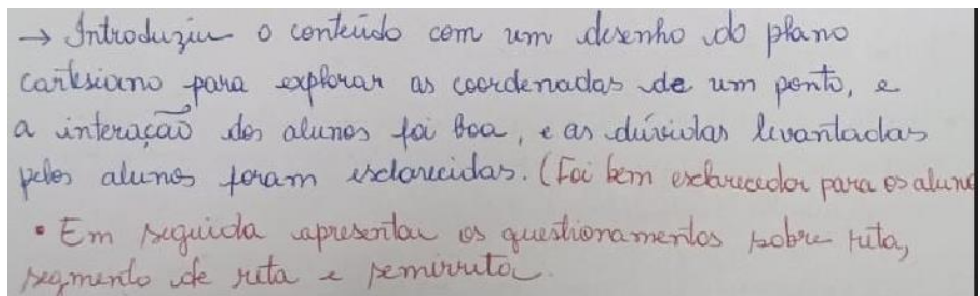 → Introduziu o conteúdo com um desenho do plano
cartesiano para explorar as coordenadas de um ponto, e
a interação dos alunos foi boa, e as dúvidas levantadas
pelos alunos foram esclarecidas. (Foi bem esclarecedor para os alun
• Em seguida apresentou os questionamentos sobre reta,
segmento de reta e semirreta.